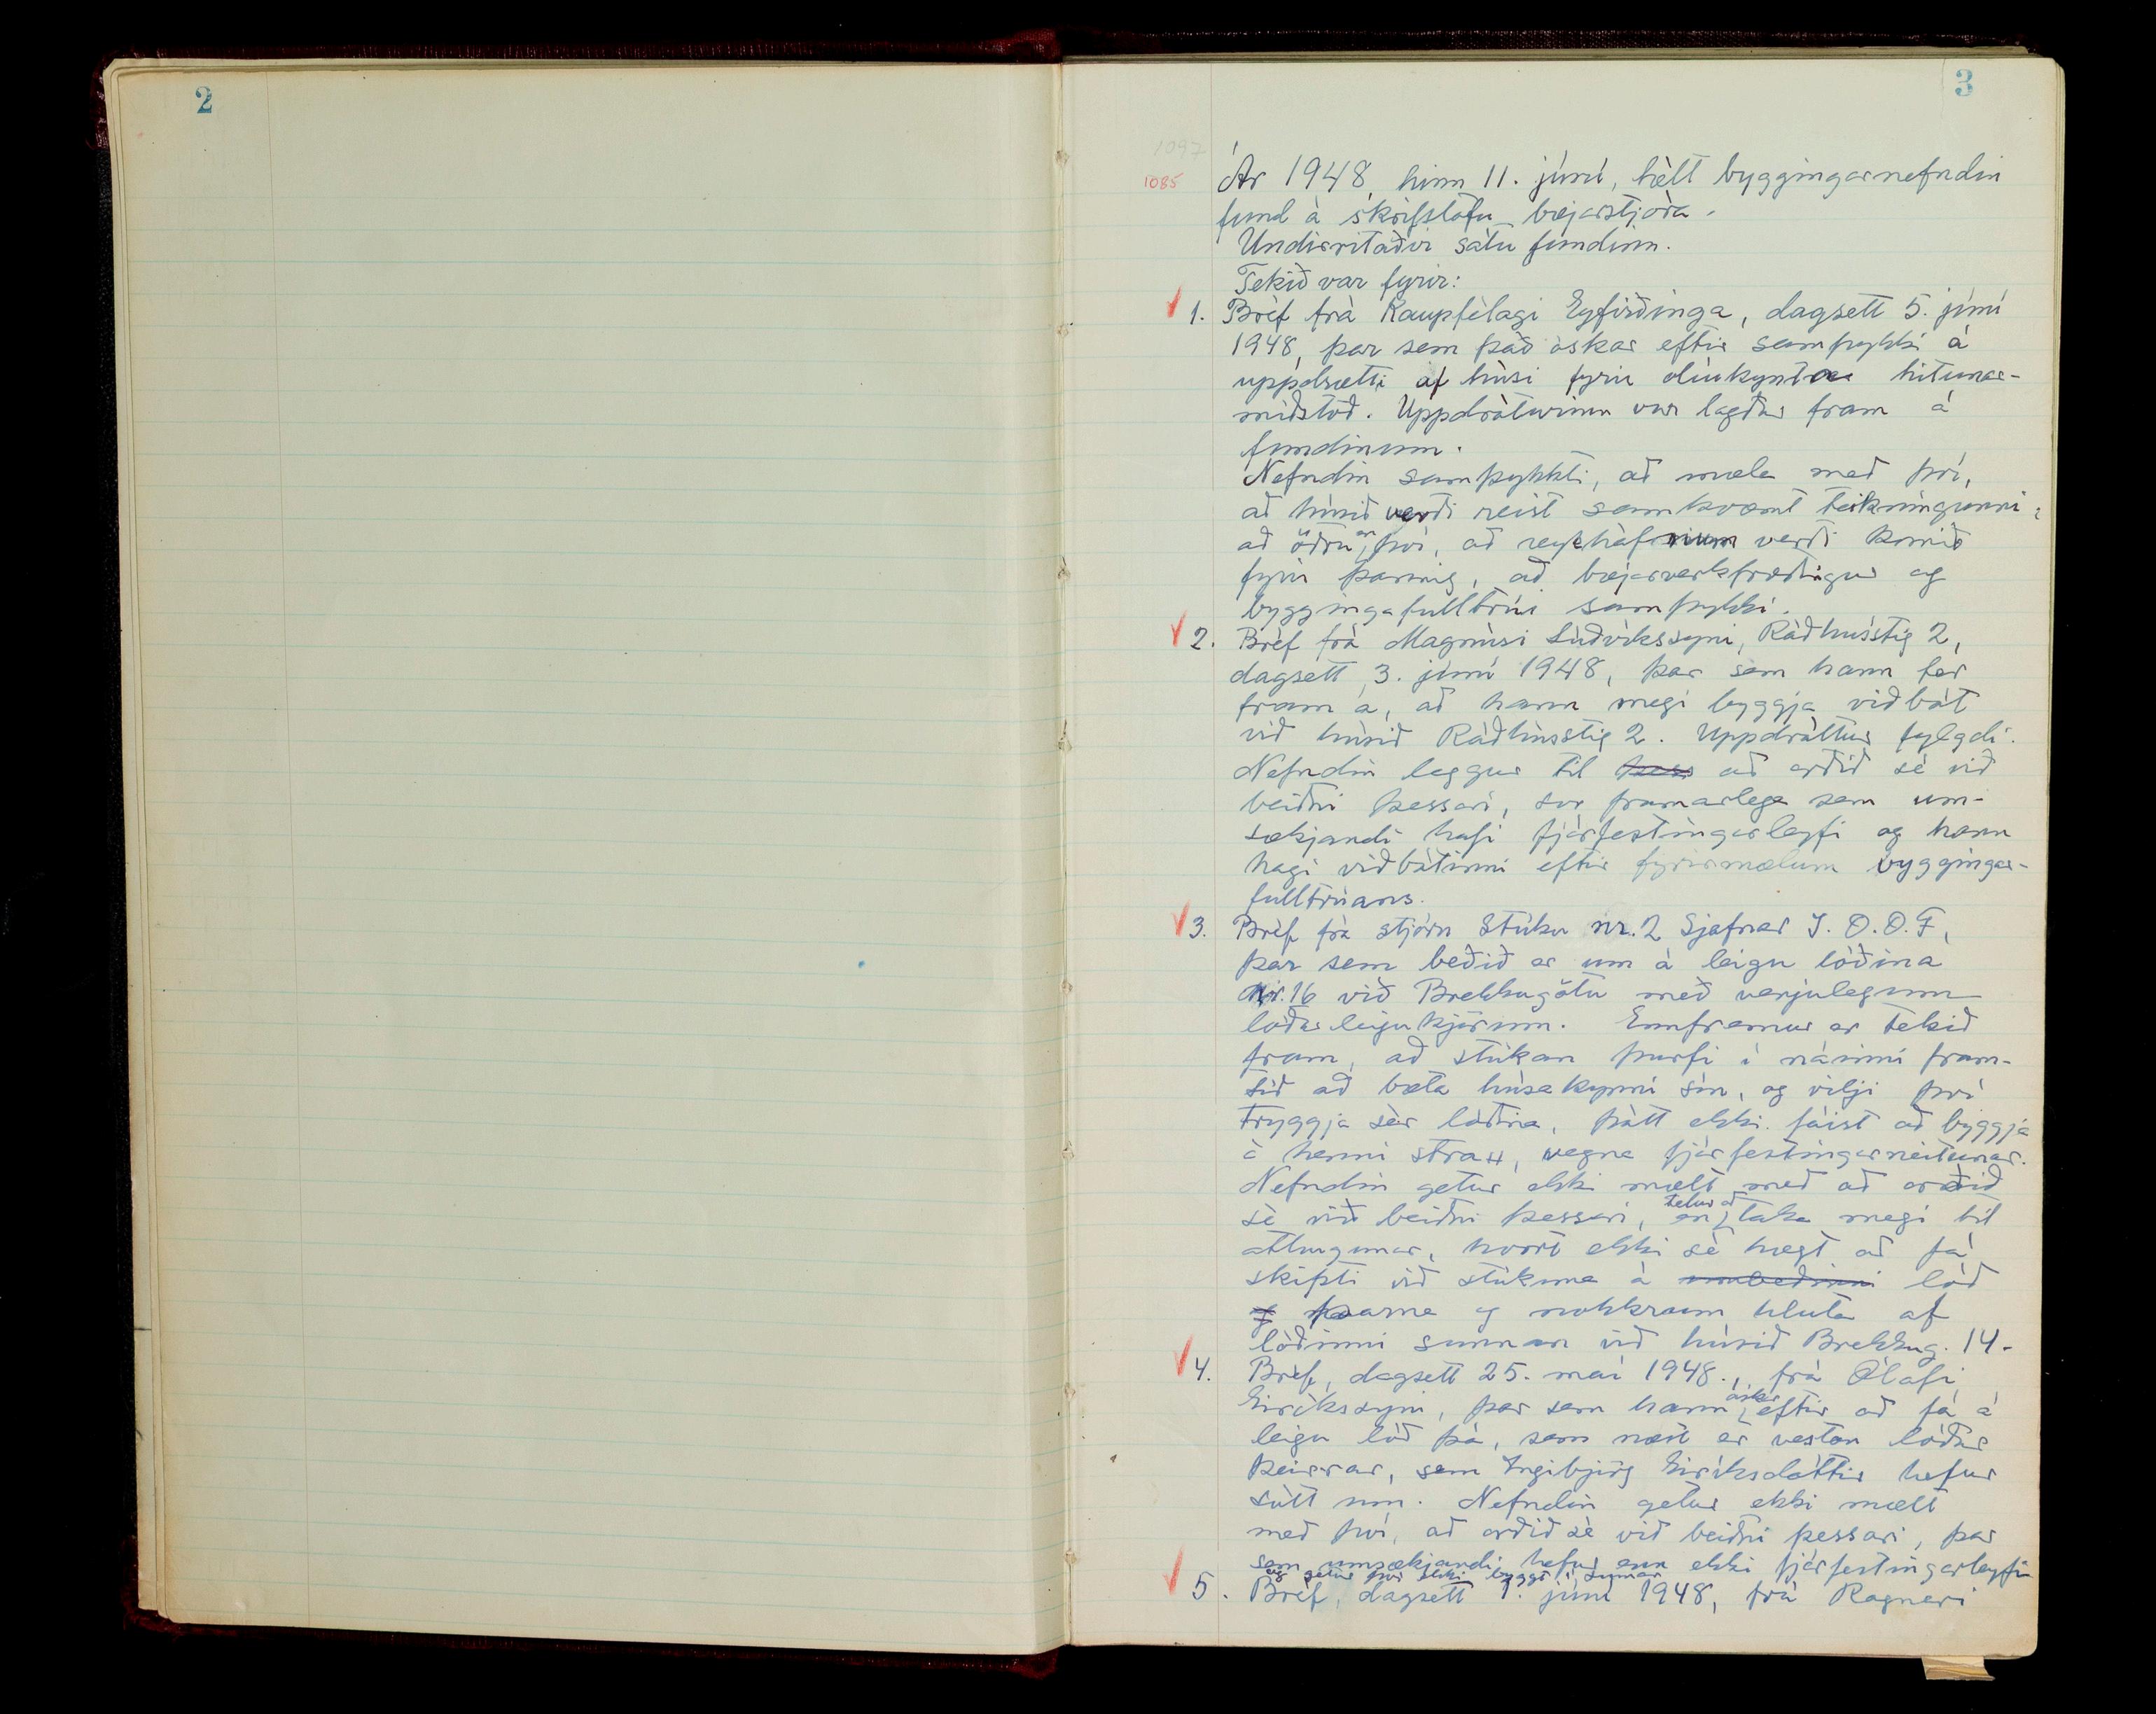 2
3
1097
1085
Ár 1948, hinn 11. júní, hélt byggingarnefndin
fund á skrifstofu bæjarstjóra.
Undirritaðir sátu fundinn.
Tekið var fyrir:
1. Bréf frá Kaupfélagi Eyfirðinga, dagsett 5. júní
1948, þar sem það óskar eftir samþykki á
uppdrætti af húsi fyrir olíukynta hitunar-
miðstöð. Uppdrátturinn var lagður fram á
fundinum.
Nefndin samþykkti, að mæla með því,
að húsið verði reist samkvæmt teikningunni
að öðru en því, að reykháfnum verði komið
fyrir þannig, að bæjarverkfræðingur og
byggingafulltrúi samþykki.
2. Bréf frá Magnúsi Lúðvíkssyni, Ráðhússtíg 2,
dagsett 3. júní 1948, þar sem hann fer
fram á, að hann megi byggja viðbót
við húsið Ráðhússtíg 2. Uppdráttur fylgdi.
Nefndin leggur til þess að orðið sé við
beiðni þessari, svo framarlega sem um-
sækjandi hafi fjárfestingarleyfi og hann
hagi viðbótinni eftir fyrirmælum byggingar-
fulltrúans.
3. Bréf frá stjórn Stúku nr. 2 Sjafnar I.O.O.F,
þar sem beðið er um á leigu lóðina
nr. 16 við Brekkugötu með venjulegum
lóðarleigukjörum. Ennfremur er tekið
fram, að stúkan þurfi í náinni fram-
tíð að bæta húsakynni sín, og vilji því
tryggja sér lóðina, þótt ekki fáist að byggja
á henni strax, vegna fjárfestingarneitunar.
Nefndin getur ekki mælt með að orðið
sé við beiðni þessari, en telur að taka megi til
athugunar, hvort ekki sé hægt að fá
skipti við stúkuna á umbeðinni lóð
og þarna og nokkrum hluta af
lóðinni sunnan við húsið Brekkug. 14.
4. Bréf, dagsett 25. maí 1948., frá Ólafi
Eiríkssyni, þar sem hann óskar eftir að fá á
leigu lóð þá, sem næst er vestan lóðar
þeirrar, sem Ingibjörg Eiríksdóttir hefur
sótt um. Nefndin getur ekki mælt
með því, að orðið sé við beiðni þessari, þar
sem umsækjandi hefur enn ekki fjárfestingarleyfi
og getur því ekki byggt í sumar
5. Bréf, dagsett 1. júní 1948, frá Ragnari